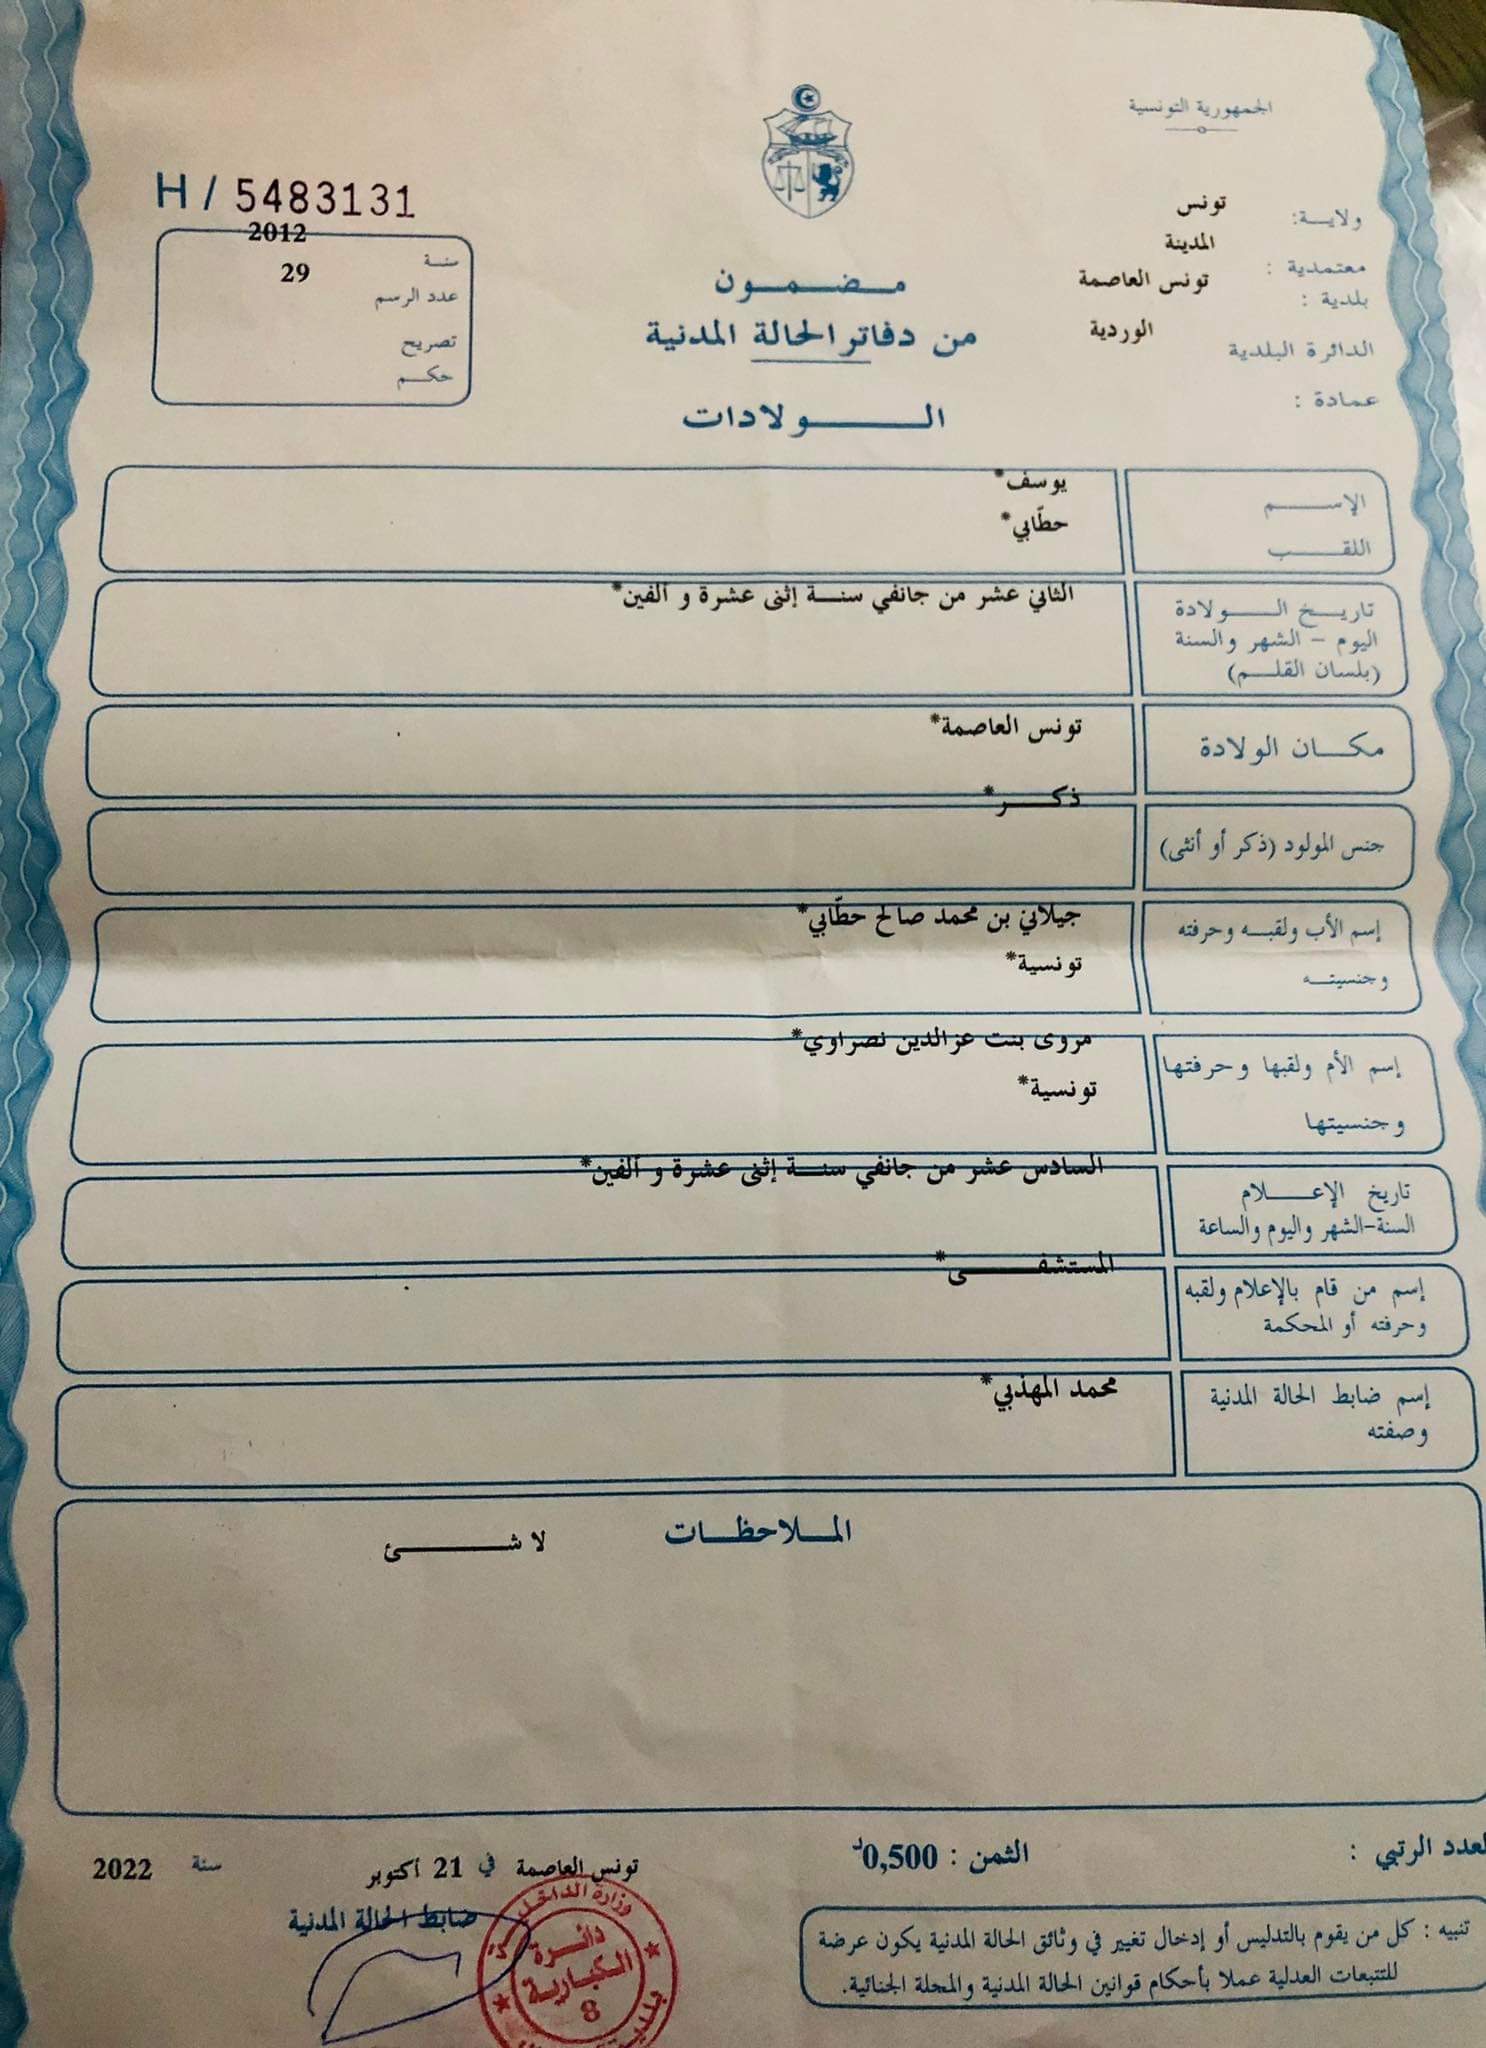 الجمهورية التونسية
ولاية: تونس
معتمدية : المدينة
بلدية : تونس العاصمة
الدائرة البلدية الوردية
عمادة :
H / 5483131
سنة 2012
عدد الرسم 29
تصريح
حكم
مضمون
من دفاتر الحالة المدنية
الولادات
الإسم يوسف*
اللقب حطّابي*
تاريخ الولادة الثاني عشر من جانفي سنة إثنى عشرة و ألفين*
اليوم - الشهر والسنة
(بلسان القلم)
مكان الولادة تونس العاصمة*
جنس المولود (ذكر أو أنثى) ذكر*
إسم الأب ولقبه وحرفته جيلاني بن محمد صالح حطّابي*
وجنسيته تونسية*
إسم الأم ولقبها وحرفتها مروى بنت عزالدين نصراوي*
وجنسيتها تونسية*
تاريخ الإعلام السادس عشر من جانفي سنة إثنى عشرة و ألفين*
السنة-الشهر واليوم والساعة
إسم من قام بالإعلام ولقبه المستشفى*
وحرفته أو المحكمة
إسم ضابط الحالة المدنية محمد المهذبي*
وصفته
الملاحظات لا شئ
لعدد الرتبي :
الثمن : 0,500د
تونس العاصمة في 21 أكتوبر سنة 2022
ضابط الحالة المدنية
وزارة الداخلية
دائرة
الكبارية
8
تنبيه : كل من يقوم بالتدليس أو إدخال تغيير في وثائق الحالة المدنية يكون عرضة
للتتبعات العدلية عملا بأحكام قوانين الحالة المدنية والمجلة الجنائية.